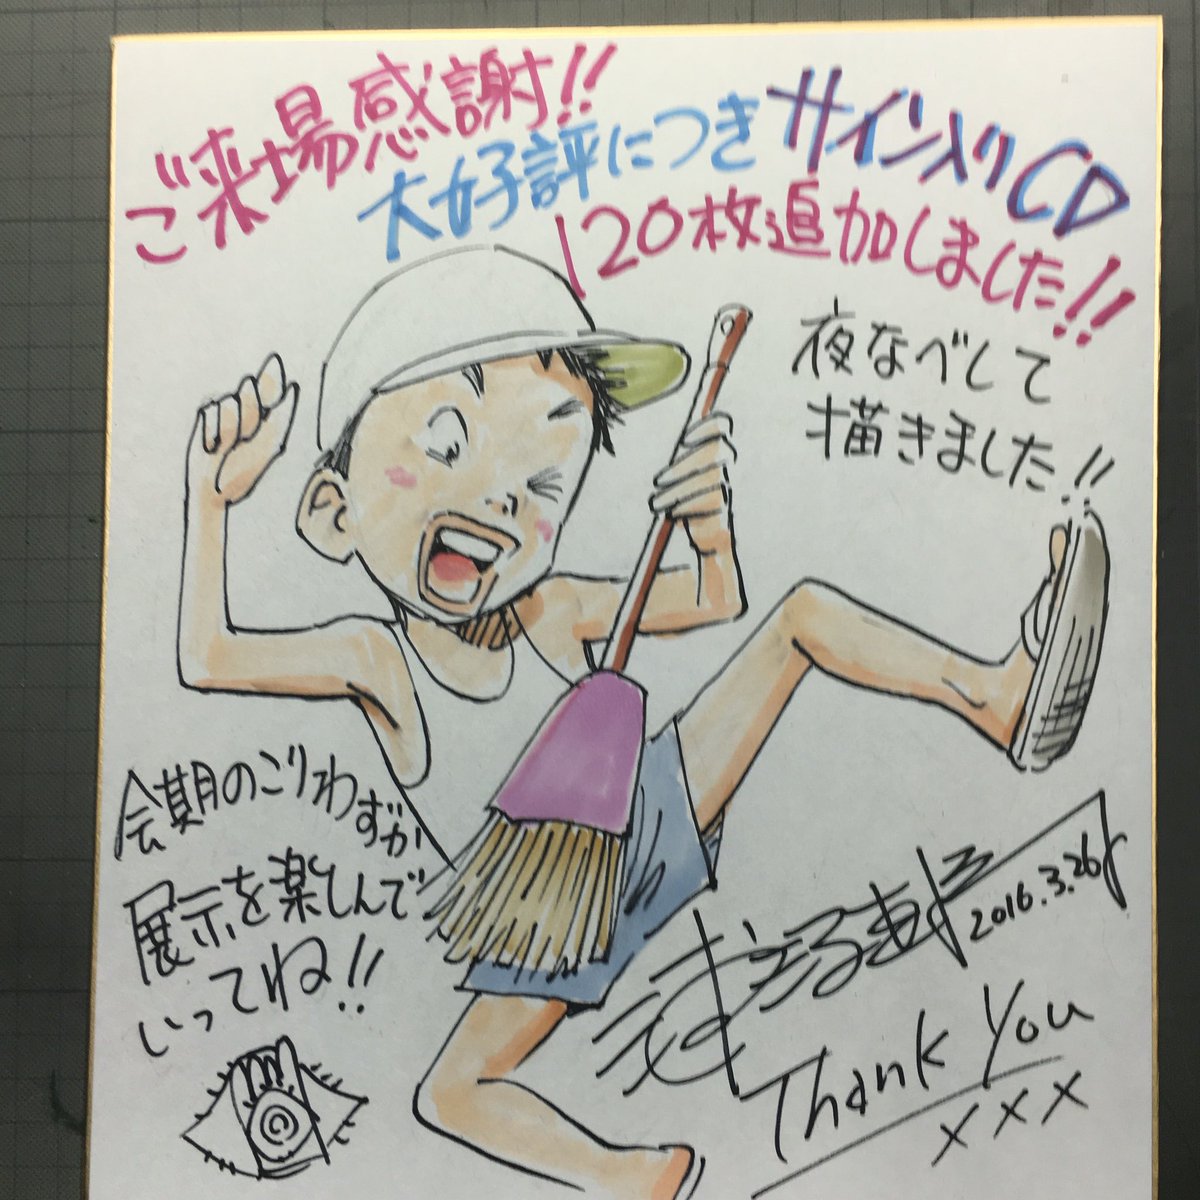 ご来場感謝!!
大好評につきサイン入りCD
120枚追加しました!!
夜なべして
描きました!!
会期のこりわずか
展示を楽しんで
いってね!!
2016.3.26
Thank You
xxx